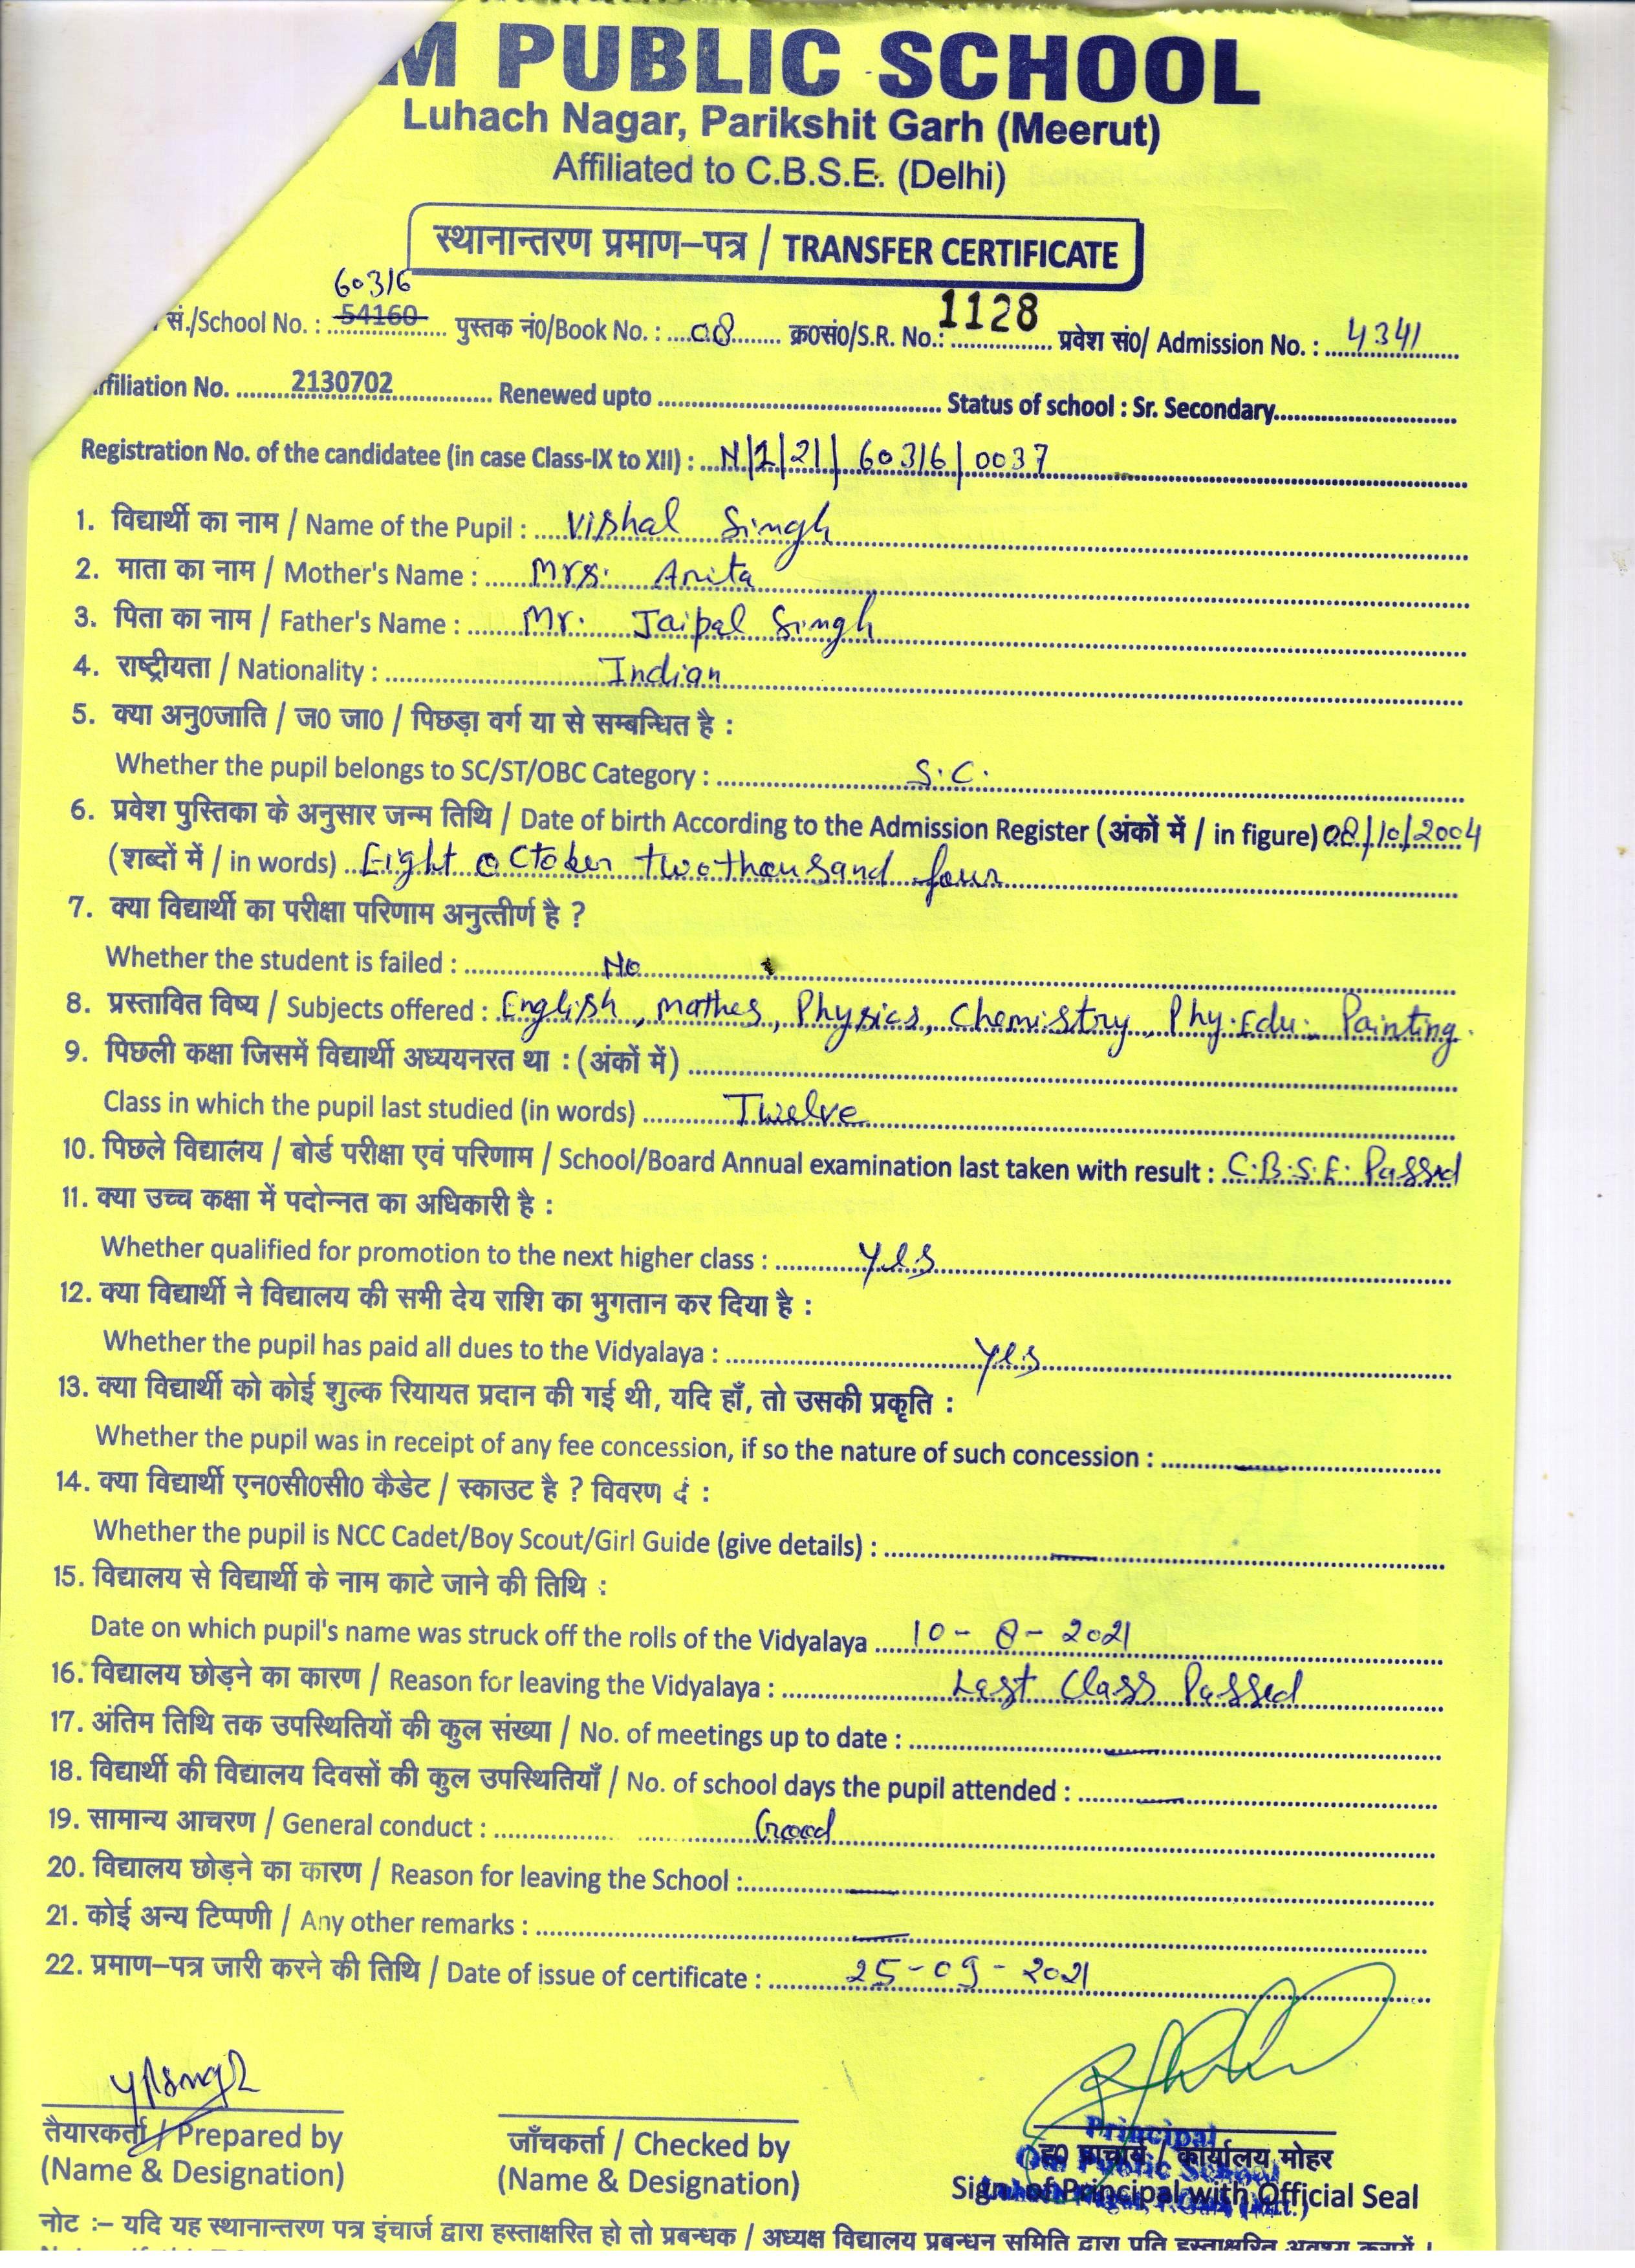 M PUBLIC SCHOOL
Luhach Nagar, Parikshit Garh (Meerut)
Affiliated to C.B.S.E. (Delhi)
स्थानान्तरण प्रमाण–पत्र / TRANSFER CERTIFICATE
60316
सं./School No. : 54160 पुस्तक नं0/Book No. : 08 क्र0सं0/S.R. No.: 1128 प्रवेश सं0/ Admission No. : 4341
ffiliation No. 2130702 Renewed upto Status of school : Sr. Secondary
Registration No. of the candidatee (in case Class-IX to XII) : N/2/21/60316/0037
1. विद्यार्थी का नाम / Name of the Pupil : Vishal Singh
2. माता का नाम / Mother's Name : Mrs. Anita
3. पिता का नाम / Father's Name : Mr. Jaipal Singh
4. राष्ट्रीयता / Nationality : Indian
5. क्या अनु0जाति / ज0 जा0 / पिछड़ा वर्ग या से सम्बन्धित है :
Whether the pupil belongs to SC/ST/OBC Category : S.C.
6. प्रवेश पुस्तिका के अनुसार जन्म तिथि / Date of birth According to the Admission Register (अंकों में / in figure) 08/10/2004
(शब्दों में / in words) Eight October two thousand four
7. क्या विद्यार्थी का परीक्षा परिणाम अनुत्तीर्ण है ?
Whether the student is failed : No
8. प्रस्तावित विष्य / Subjects offered : English, Mathes, Physics, Chemistry, Phy. Edu. Painting.
9. पिछली कक्षा जिसमें विद्यार्थी अध्ययनरत था : (अंकों में)
Class in which the pupil last studied (in words) Twelve
10. पिछले विद्यालय / बोर्ड परीक्षा एवं परिणाम / School/Board Annual examination last taken with result : C.B.S.E. Passed
11. क्या उच्च कक्षा में पदोन्नत का अधिकारी है :
Whether qualified for promotion to the next higher class : Yes
12. क्या विद्यार्थी ने विद्यालय की सभी देय राशि का भुगतान कर दिया है :
Whether the pupil has paid all dues to the Vidyalaya : Yes
13. क्या विद्यार्थी को कोई शुल्क रियायत प्रदान की गई थी, यदि हाँ, तो उसकी प्रकृति :
Whether the pupil was in receipt of any fee concession, if so the nature of such concession : —
14. क्या विद्यार्थी एन0सी0सी0 कैडेट / स्काउट है ? विवरण दें :
Whether the pupil is NCC Cadet/Boy Scout/Girl Guide (give details) : —
15. विद्यालय से विद्यार्थी के नाम काटे जाने की तिथि :
Date on which pupil's name was struck off the rolls of the Vidyalaya 10-8-2021
16. विद्यालय छोड़ने का कारण / Reason for leaving the Vidyalaya : Last Class Passed
17. अंतिम तिथि तक उपस्थितियों की कुल संख्या / No. of meetings up to date : —
18. विद्यार्थी की विद्यालय दिवसों की कुल उपस्थितियाँ / No. of school days the pupil attended : —
19. सामान्य आचरण / General conduct : Good
20. विद्यालय छोड़ने का कारण / Reason for leaving the School : —
21. कोई अन्य टिप्पणी / Any other remarks : —
22. प्रमाण–पत्र जारी करने की तिथि / Date of issue of certificate : 25-09-2021
तैयारकर्ता / Prepared by
(Name & Designation)
जाँचकर्ता / Checked by
(Name & Designation)
Principal
ह0 प्राचार्य / कार्यालय मोहर
Public School
Sign. of Principal with Official Seal
नोट :– यदि यह स्थानान्तरण पत्र इंचार्ज द्वारा हस्ताक्षरित हो तो प्रबन्धक / अध्यक्ष विद्यालय प्रबन्धन समिति द्वारा प्रति हस्ताक्षरित अवश्य करायें ।